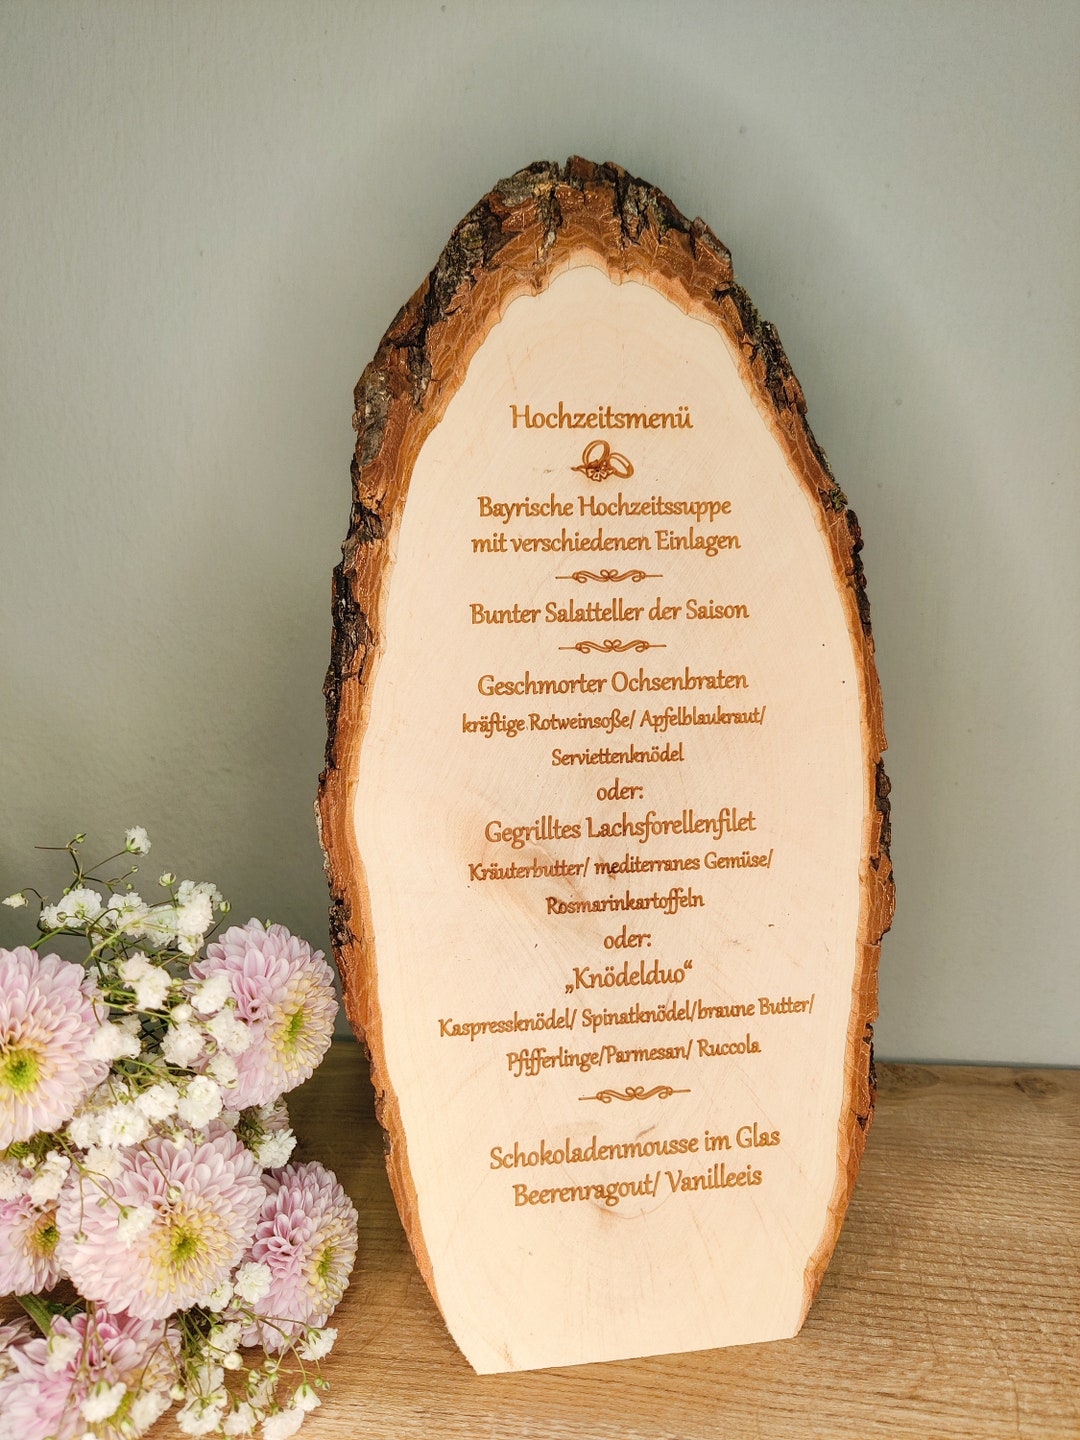 Hochzeitsmenü
Bayrische Hochzeitssuppe
mit verschiedenen Einlagen
Bunter Salatteller der Saison
Geschmorter Ochsenbraten
kräftige Rotweinsoße/ Apfelblaukraut/
Serviettenknödel
oder:
Gegrilltes Lachsforellenfilet
Kräuterbutter/ mediterranes Gemüse/
Rosmarinkartoffeln
oder:
„Knödelduo“
Kaspressknödel/ Spinatknödel/braune Butter/
Pfifferlinge/Parmesan/ Ruccola
Schokoladenmousse im Glas
Beerenragout/ Vanilleeis